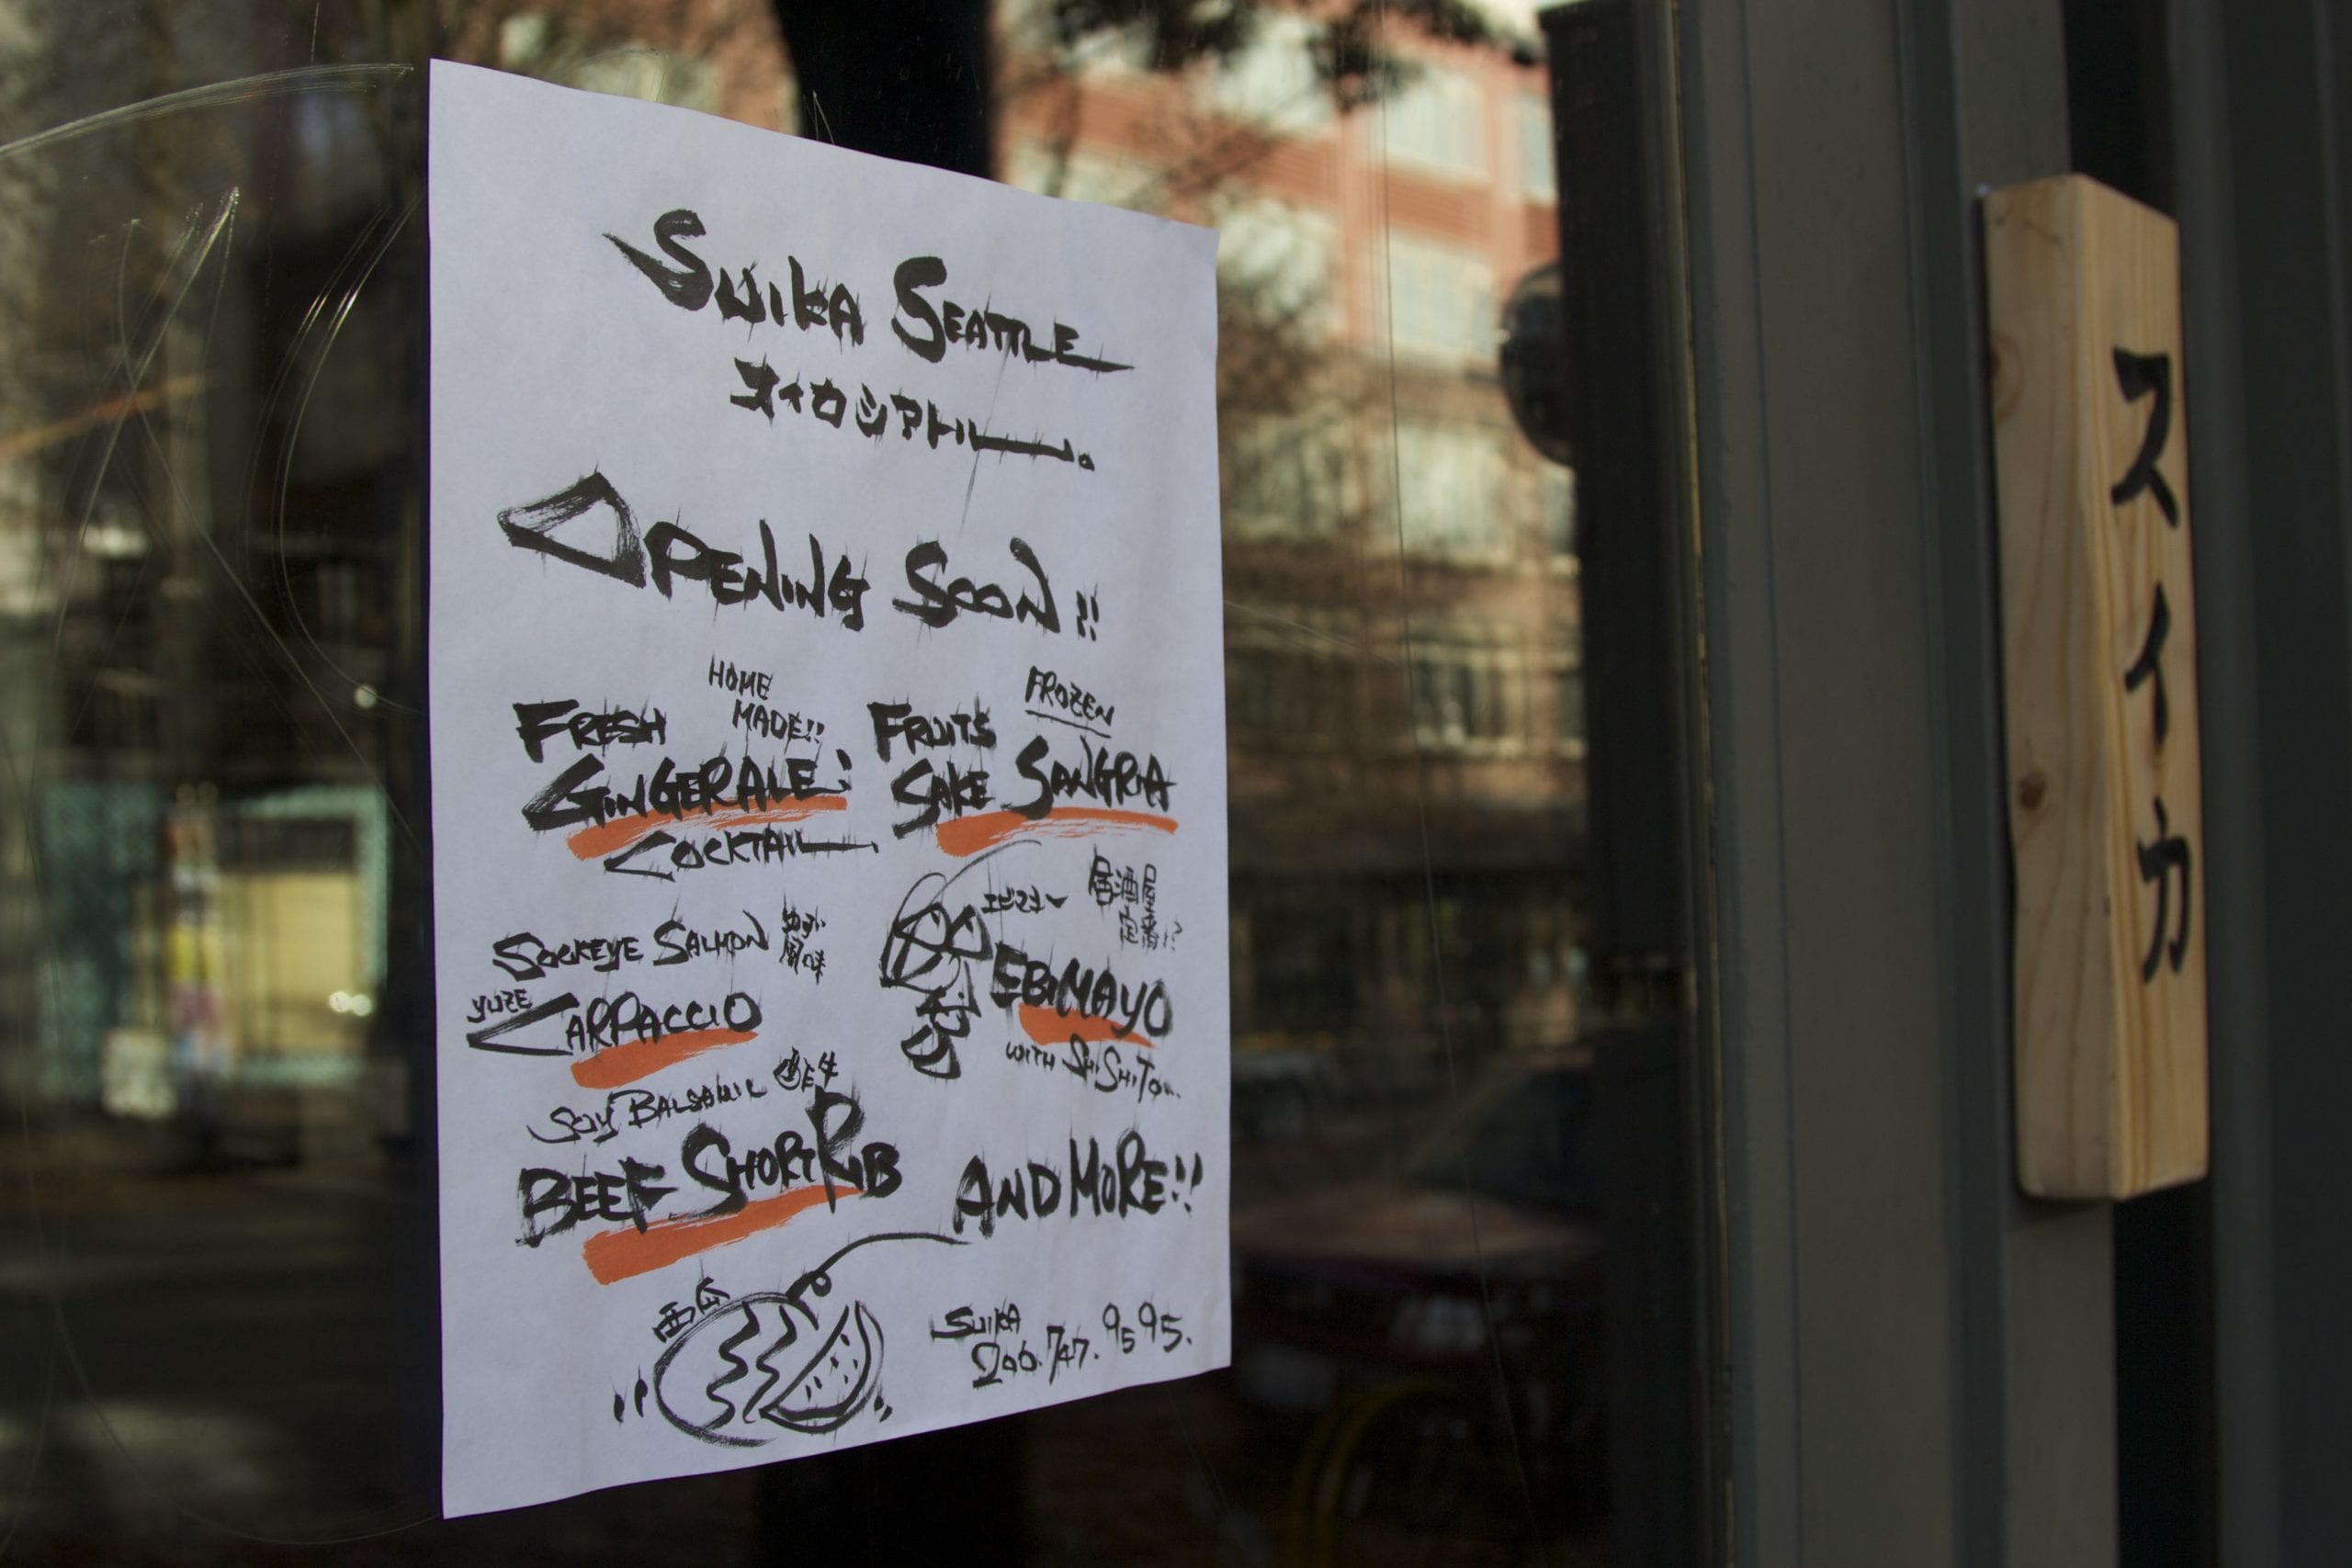 SUIKA SEATTLE
スイカシアトル。
OPENING SOON!!
HOME
MADE!!
FRESH
GINGERALE
COCKTAIL
FROZEN
FRUITS
SAKE SANGRIA
SOCKEYE SALMON
ゆず
風味
YUZE
CARPACCIO
エビマヨー
居酒屋
定番!?
EBIMAYO
WITH SHISHITO...
SOY BALSAMIC
BEEF SHORT RIB
AND MORE!!
西瓜
SUIKA
206.747.9595.
スイカ